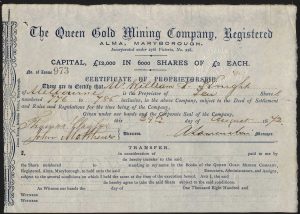 The Queen Gold Mining Company, Registered
ALMA, MARYBOROUGH.
Incorporated under 27th Victoria, No. 228.
CAPITAL, £12,000 IN 6000 SHARES OF £2 EACH.
No. of Scrip 973
CERTIFICATE OF PROPRIETORSHIP.
These are to Certify that Mr William Knight
of Melbourne is
numbered 776 to 786 inclusive, in the above Company, subject to the Deed of Settlement
and Rules and Regulations for the time being of the Company.
Given under our hands and the Corporate Seal of the Company,
this 24th day of August 187
John Matthews
TRANSFER.
In consideration of paid to me by
do hereby transfer to the said
the Share numbered to standing in my name in the Books of the QUEEN GOLD MINING COMPANY,
Registered, Alma, Maryborough, to hold unto the said Executors, Administrators, and Assigns,
subject to the several conditions on which I held the same at the time of the execution hereof.
And the said do hereby agree to take the said Share subject to the said conditions.
As Witness our hands the day of One Thousand Eight Hundred and
Witness